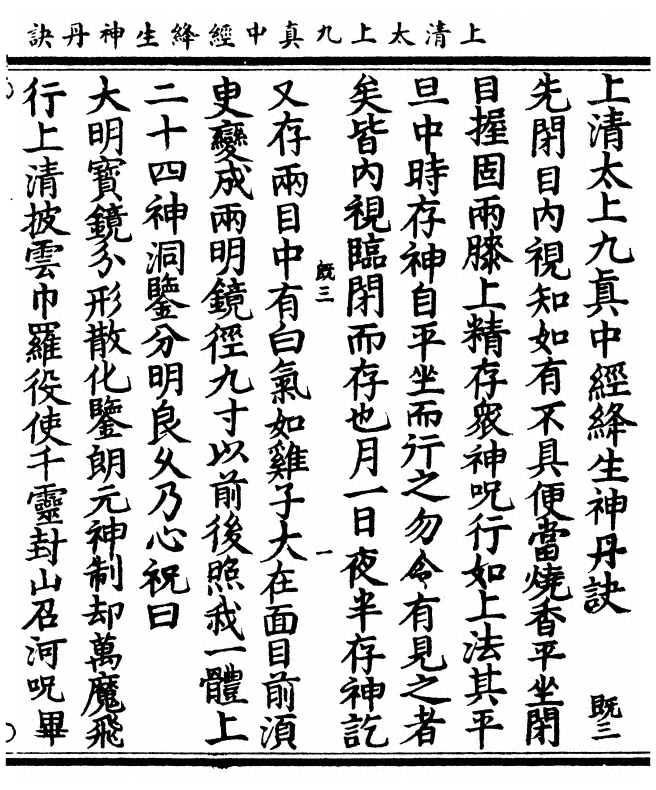 上清太上九真中經絳生神丹訣
上清太上九真中經絳生神丹訣 既三
先閉目内視知如有不具便當燒香平坐閉
目握固兩膝上精存衆神呪行如上法其平
旦中時存神自平坐而行之勿令有見之者
矣皆内視臨閉而存也月一日夜半存神訖
既三 一
又存兩目中有白氣如雞子大在面目前須
臾變成兩明鏡徑九寸以前後照我一體上
二十四神洞鑒分明良久乃心祝曰
大明寶鏡分形散化鑒朗元神制却萬魔飛
行上清披雲巾羅役使千靈封山召河呪畢